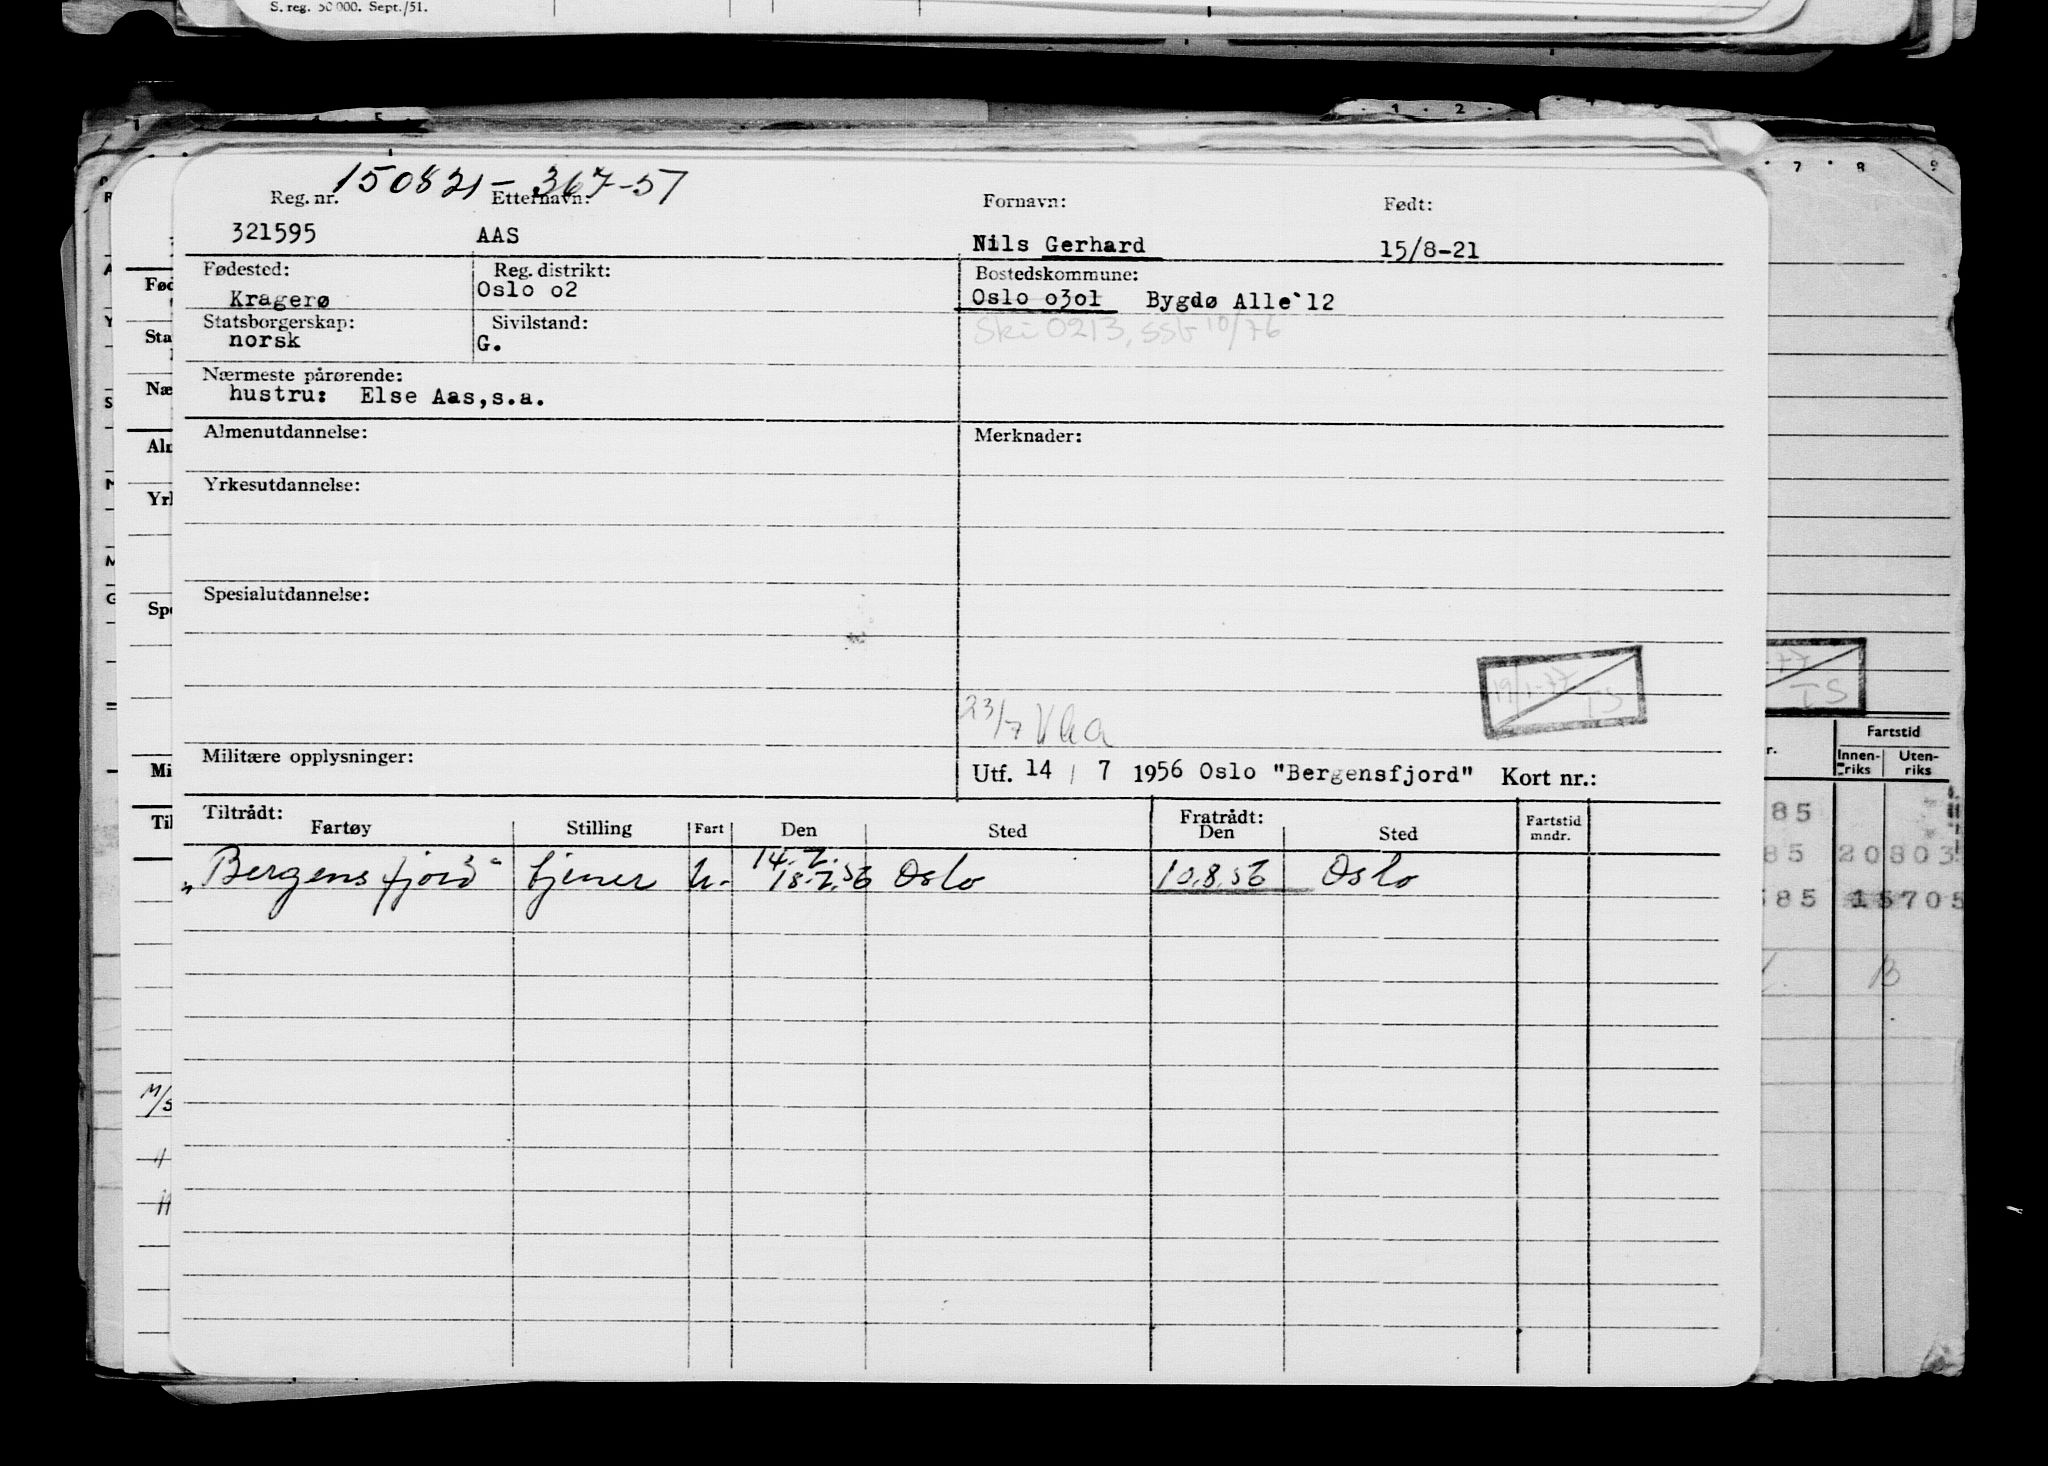 S. reg. 50 000. Sept./51.
1 2
7 8 9
150821-367-57
Reg. nr. Etternavn: Fornavn: Født:
321595 AAS Nils Gerhard 15/8-21
Fødested: Reg. distrikt: Bostedskommune:
Kragerø Oslo o2 Oslo o3o1 Bygdø Alle`12
Statsborgerskap: Sivilstand: Ski 0213, SSb 10/76
norsk G.
Nærmeste pårørende:
hustru: Else Aas,s.a.
Almenutdannelse: Merknader:
Yrkesutdannelse:
Spesialutdannelse:
19/1-77 TS
TS
23/7
Militære opplysninger: Utf. 14 / 7 1956 Oslo "Bergensfjord" Kort nr.:
Tiltrådt: Fratrådt:
Fartøy Stilling Fart Den Sted Den Sted Fartstid mndr.
14.7.
"Bergensfjord" tjener u. 18.7.56 Oslo 10.8.56 Oslo
Fartstid
Innenriks Utenriks
85
85 20803
585 15705
B
Fød
Sta
Næ
Aln
Yrk
Spe
Mi
Til
M/S